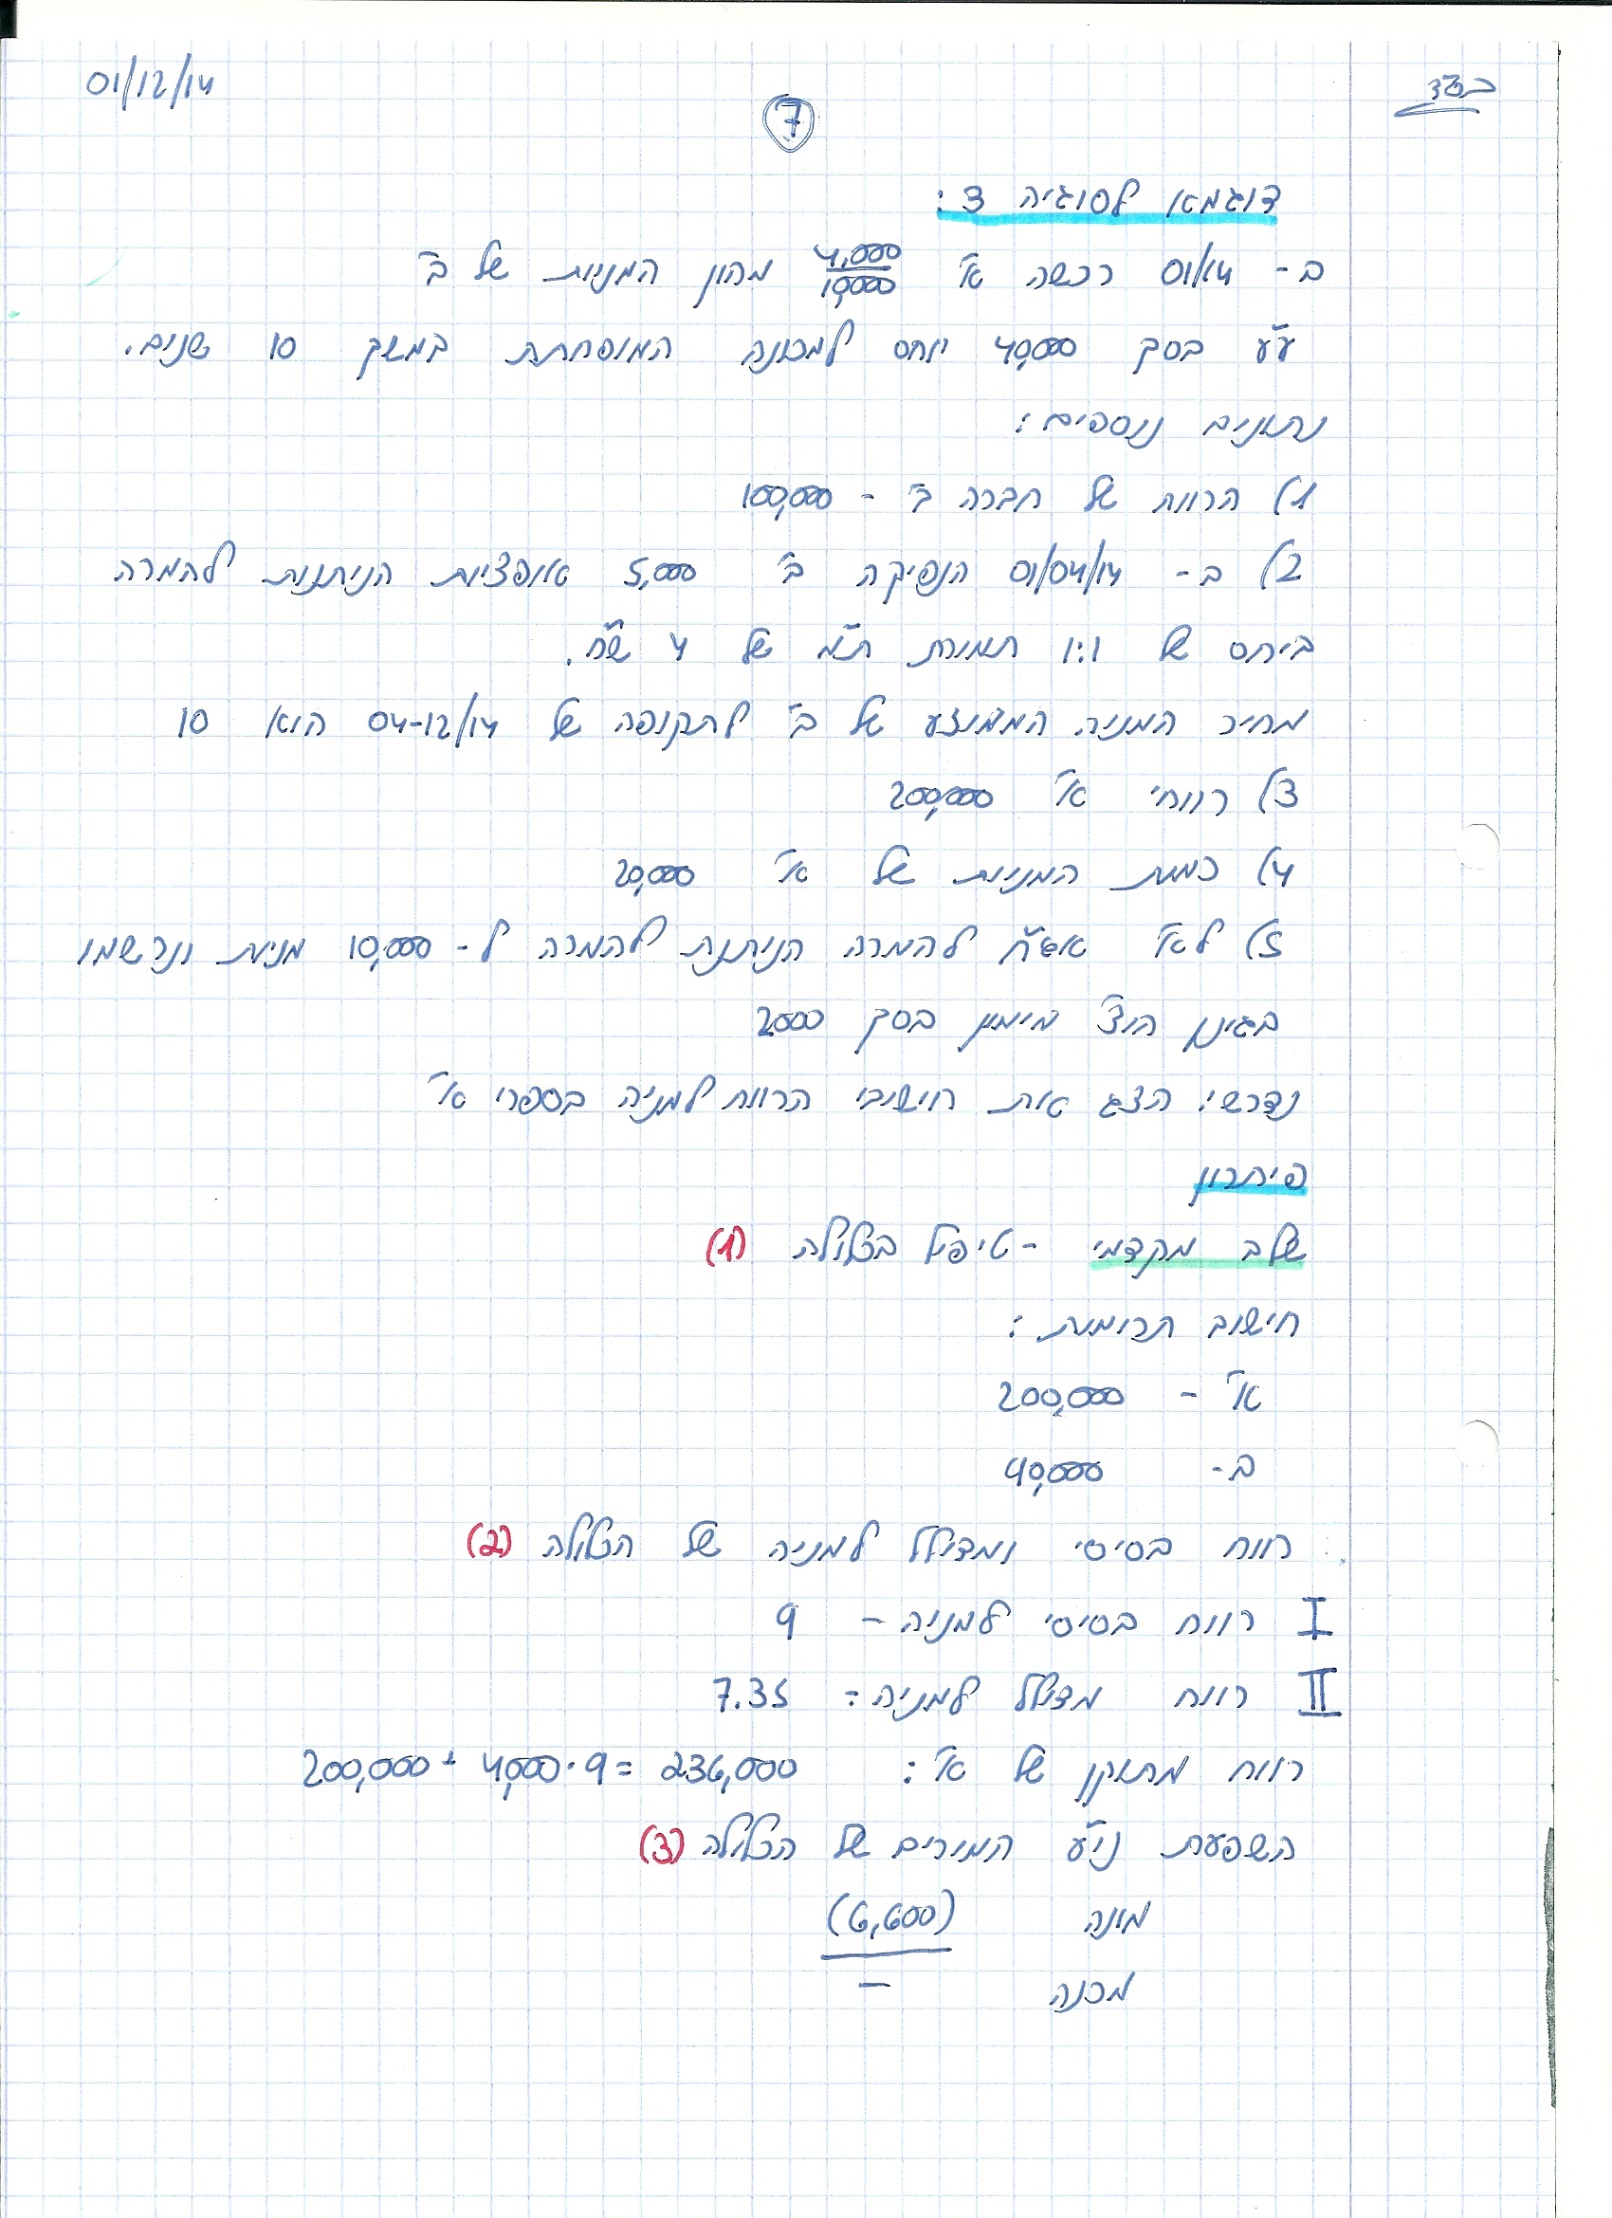 בס"ד
01/12/14
7
דוגמא לסוגיה 3:
ב- 01/14 רכשה א' 4,000/10,000 מהון המניות של ב'
ע"ע בסך 40,000 יוחס למכונה המופחתת במשך 10 שנים.
נתונים נוספים:
1) הרווח של חברה ב' - 100,000
2) ב- 01/04/14 הנפיקה ב' 5,000 אופציות הניתנות להמרה
ביחס של 1:1 תמורת ת"מ של 4 ש"ח.
מחיר המניה הממוצע של ב' לתקופה של 04-12/14 הוא 10
3) רווחי א' 200,000
4) כמות המניות של א' 20,000
5) לא' אג"ח להמרה הניתנת להמרה ל- 10,000 מניות ונרשמו
בגינן הוצ' מימון בסך 2000
נדרש: הצג את חישובי הרווח למניה בספרי א'
פיתרון
שלב מקדמי - טיפול בכלולה (1)
חישוב תרומות:
א' - 200,000
ב- 40,000
רווח בסיסי ומדולל למניה של הכלולה (2)
I רווח בסיסי למניה - 9
II רווח מדולל למניה = 7.35
רווח מתוקן של א': 200,000 + 4,000·9 = 236,000
השפעת ני"ע המירים של הכלולה (3)
מונה (6,600)
מכנה -